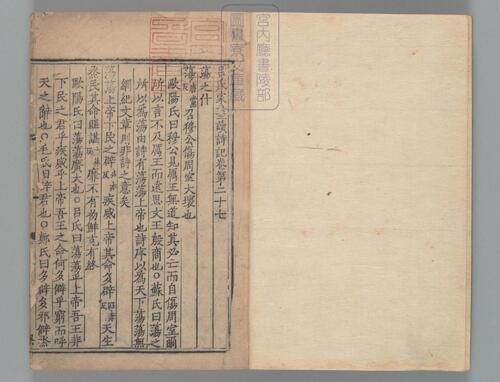 宮内廳書陵部
圖書寮文庫蔵
呂氏家塾讀詩記卷第二十七
蕩之什
蕩召穆公傷周室大壞也
歐陽氏曰穆公見厲王無道知其必亡而自傷周室爾
所以言不及厲王而遠思文王殷商也○蘇氏曰蕩之
所以為蕩由詩有蕩蕩上帝也詩序以為天下蕩蕩無
綱紀文章則非詩之意矣
蕩蕩上帝下民之辟疾威上帝其命多辟天生
烝民其命匪諶靡不有初鮮克有終
歐陽氏曰蕩蕩廣大也○呂氏曰蕩蕩乎上帝吾王非
下民之君乎疾威乎上帝吾王之命何多僻乎窮而呼
天之辭也○毛氏曰辟君也○鄭氏曰多辟多邪僻